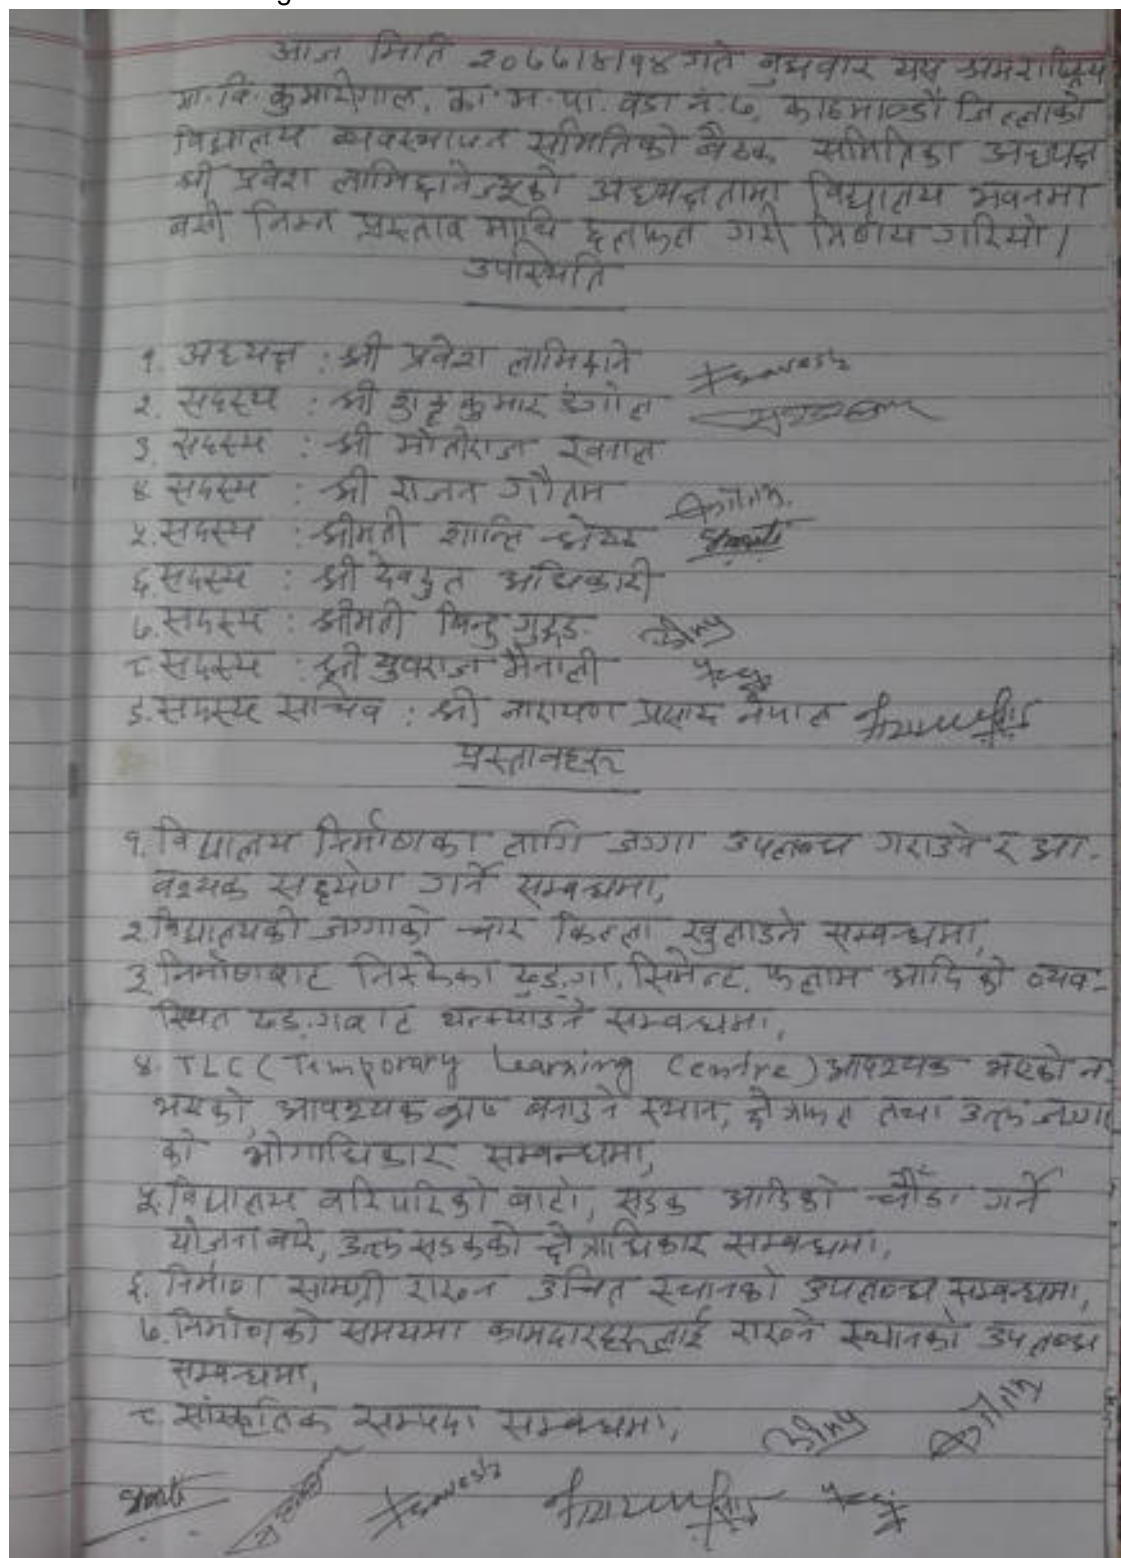 आज मिति २०७७।४।१४ गते बुधबार यस श्रमराष्ट्रिय
मा.वि. कुमारीगाल, का.म.पा. वडा नं. ७, काठमाण्डौं जिल्लाको
विद्यालय व्यवस्थापन समितिको बैठक समितिका अध्यक्ष
श्री प्रवेश लामिछानेज्यूको अध्यक्षतामा विद्यालय भवनमा
बसी निम्न प्रस्ताव माथि छलफल गरी निर्णय गरियो।
उपस्थिति
१. अध्यक्ष : श्री प्रवेश लामिछाने
२. सदस्य : श्री कुमार डंगोल
३. सदस्य : श्री मोतीराज खनाल
४. सदस्य : श्री राजन गौतम
५. सदस्य : श्रीमती शान्ति श्रेष्ठ
६. सदस्य : श्री देवदुत अधिकारी
७. सदस्य : श्रीमती विन्दु गुरुङ
८. सदस्य : श्री युवराज मैनाली
९. सदस्य सचिव : श्री नारायण प्रसाद नेपाल
प्रस्तावहरू
१. विद्यालय निर्माणका लागि जग्गा उपलब्ध गराउने र आ-
वश्यक सहयोग गर्ने सम्बन्धमा,
२. विद्यालयको जग्गाको चार किल्ला खुलाउने सम्बन्धमा,
३. निर्माणबाट निस्केका ढुङ्गा, सिमेन्ट, फलाम आदिको व्यव-
स्थित ढङ्गबाट थन्क्याउने सम्बन्धमा,
४. TLC (Temporary Learning Centre) आवश्यक भएको न-
भएको, आवश्यक भए बनाउने स्थान, क्षेत्रफल तथा उक्त जग्गा
को भोगाधिकार सम्बन्धमा,
५. विद्यालय वरिपरिको बाटो, सडक आदिको चौंडा गर्ने
योजना बारे, उक्त सडकको क्षेत्राधिकार सम्बन्धमा,
६. निर्माण सामग्री राख्न उचित स्थानको उपलब्ध सम्बन्धमा,
७. निर्माणको समयमा कामदारहरूलाई राख्ने स्थानको उपलब्ध
सम्बन्धमा,
८. सांस्कृतिक सम्पदा सम्बन्धमा,